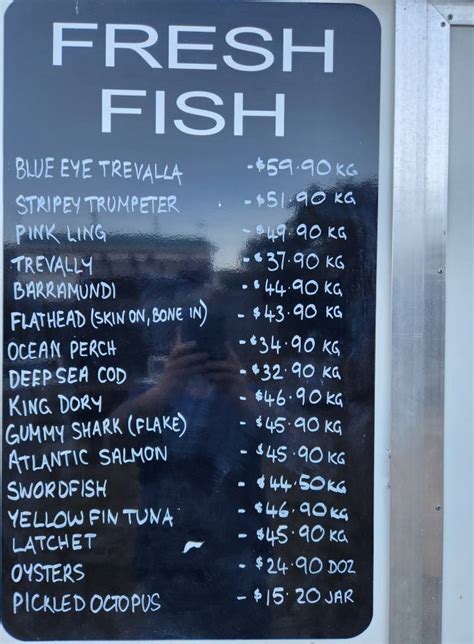 FRESH
FISH
BLUE EYE TREVALLA - $59.90 KG
STRIPEY TRUMPETER - $51.90 KG
PINK LING - $49.90 KG
TREVALLY - $37.90 KG
BARRAMUNDI - $44.90 KG
FLATHEAD (SKIN ON, BONE IN) - $43.90 KG
OCEAN PERCH - $34.90 KG
DEEP SEA COD - $32.90 KG
KING DORY - $46.90 KG
GUMMY SHARK (FLAKE) - $45.90 KG
ATLANTIC SALMON - $45.90 KG
SWORDFISH - $44.50 KG
YELLOW FIN TUNA - $46.90 KG
LATCHET - $45.90 KG
OYSTERS - $24.90 DOZ
PICKLED OCTOPUS - $15.20 JAR